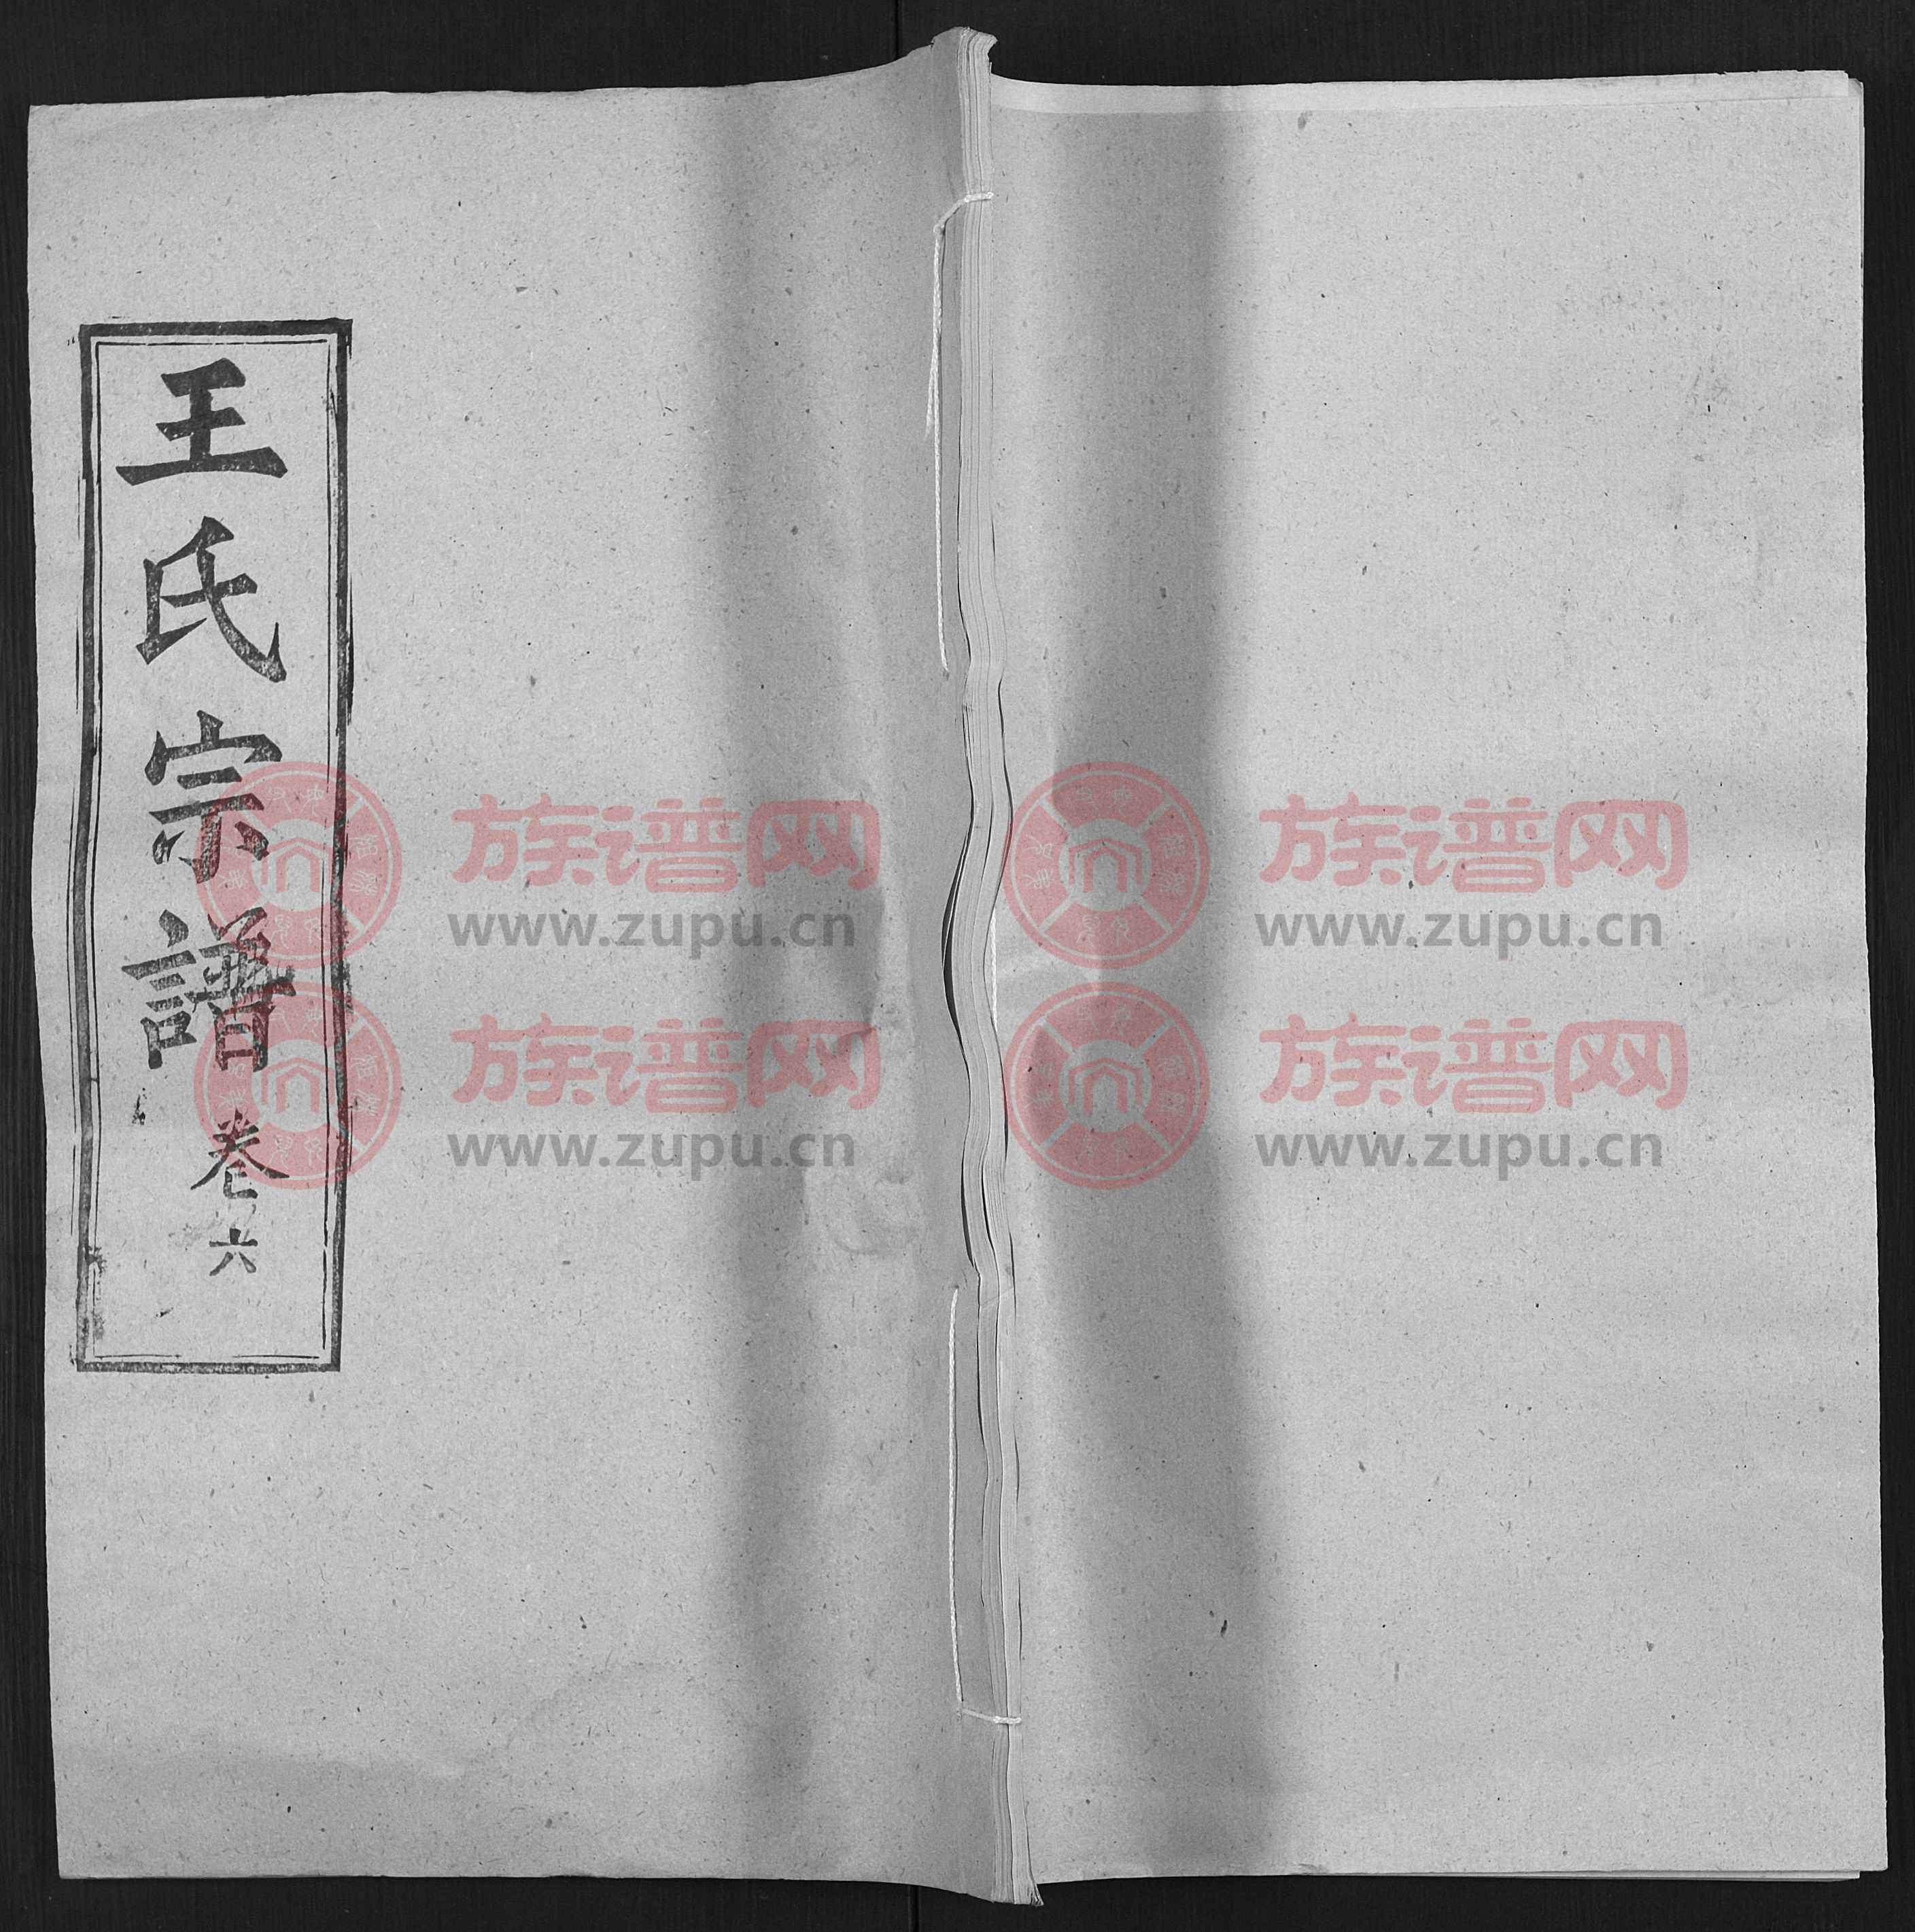 王氏宗譜 卷六
族谱网
www.zupu.cn
族谱网
www.zupu.cn
族谱网
www.zupu.cn
族谱网
www.zupu.cn